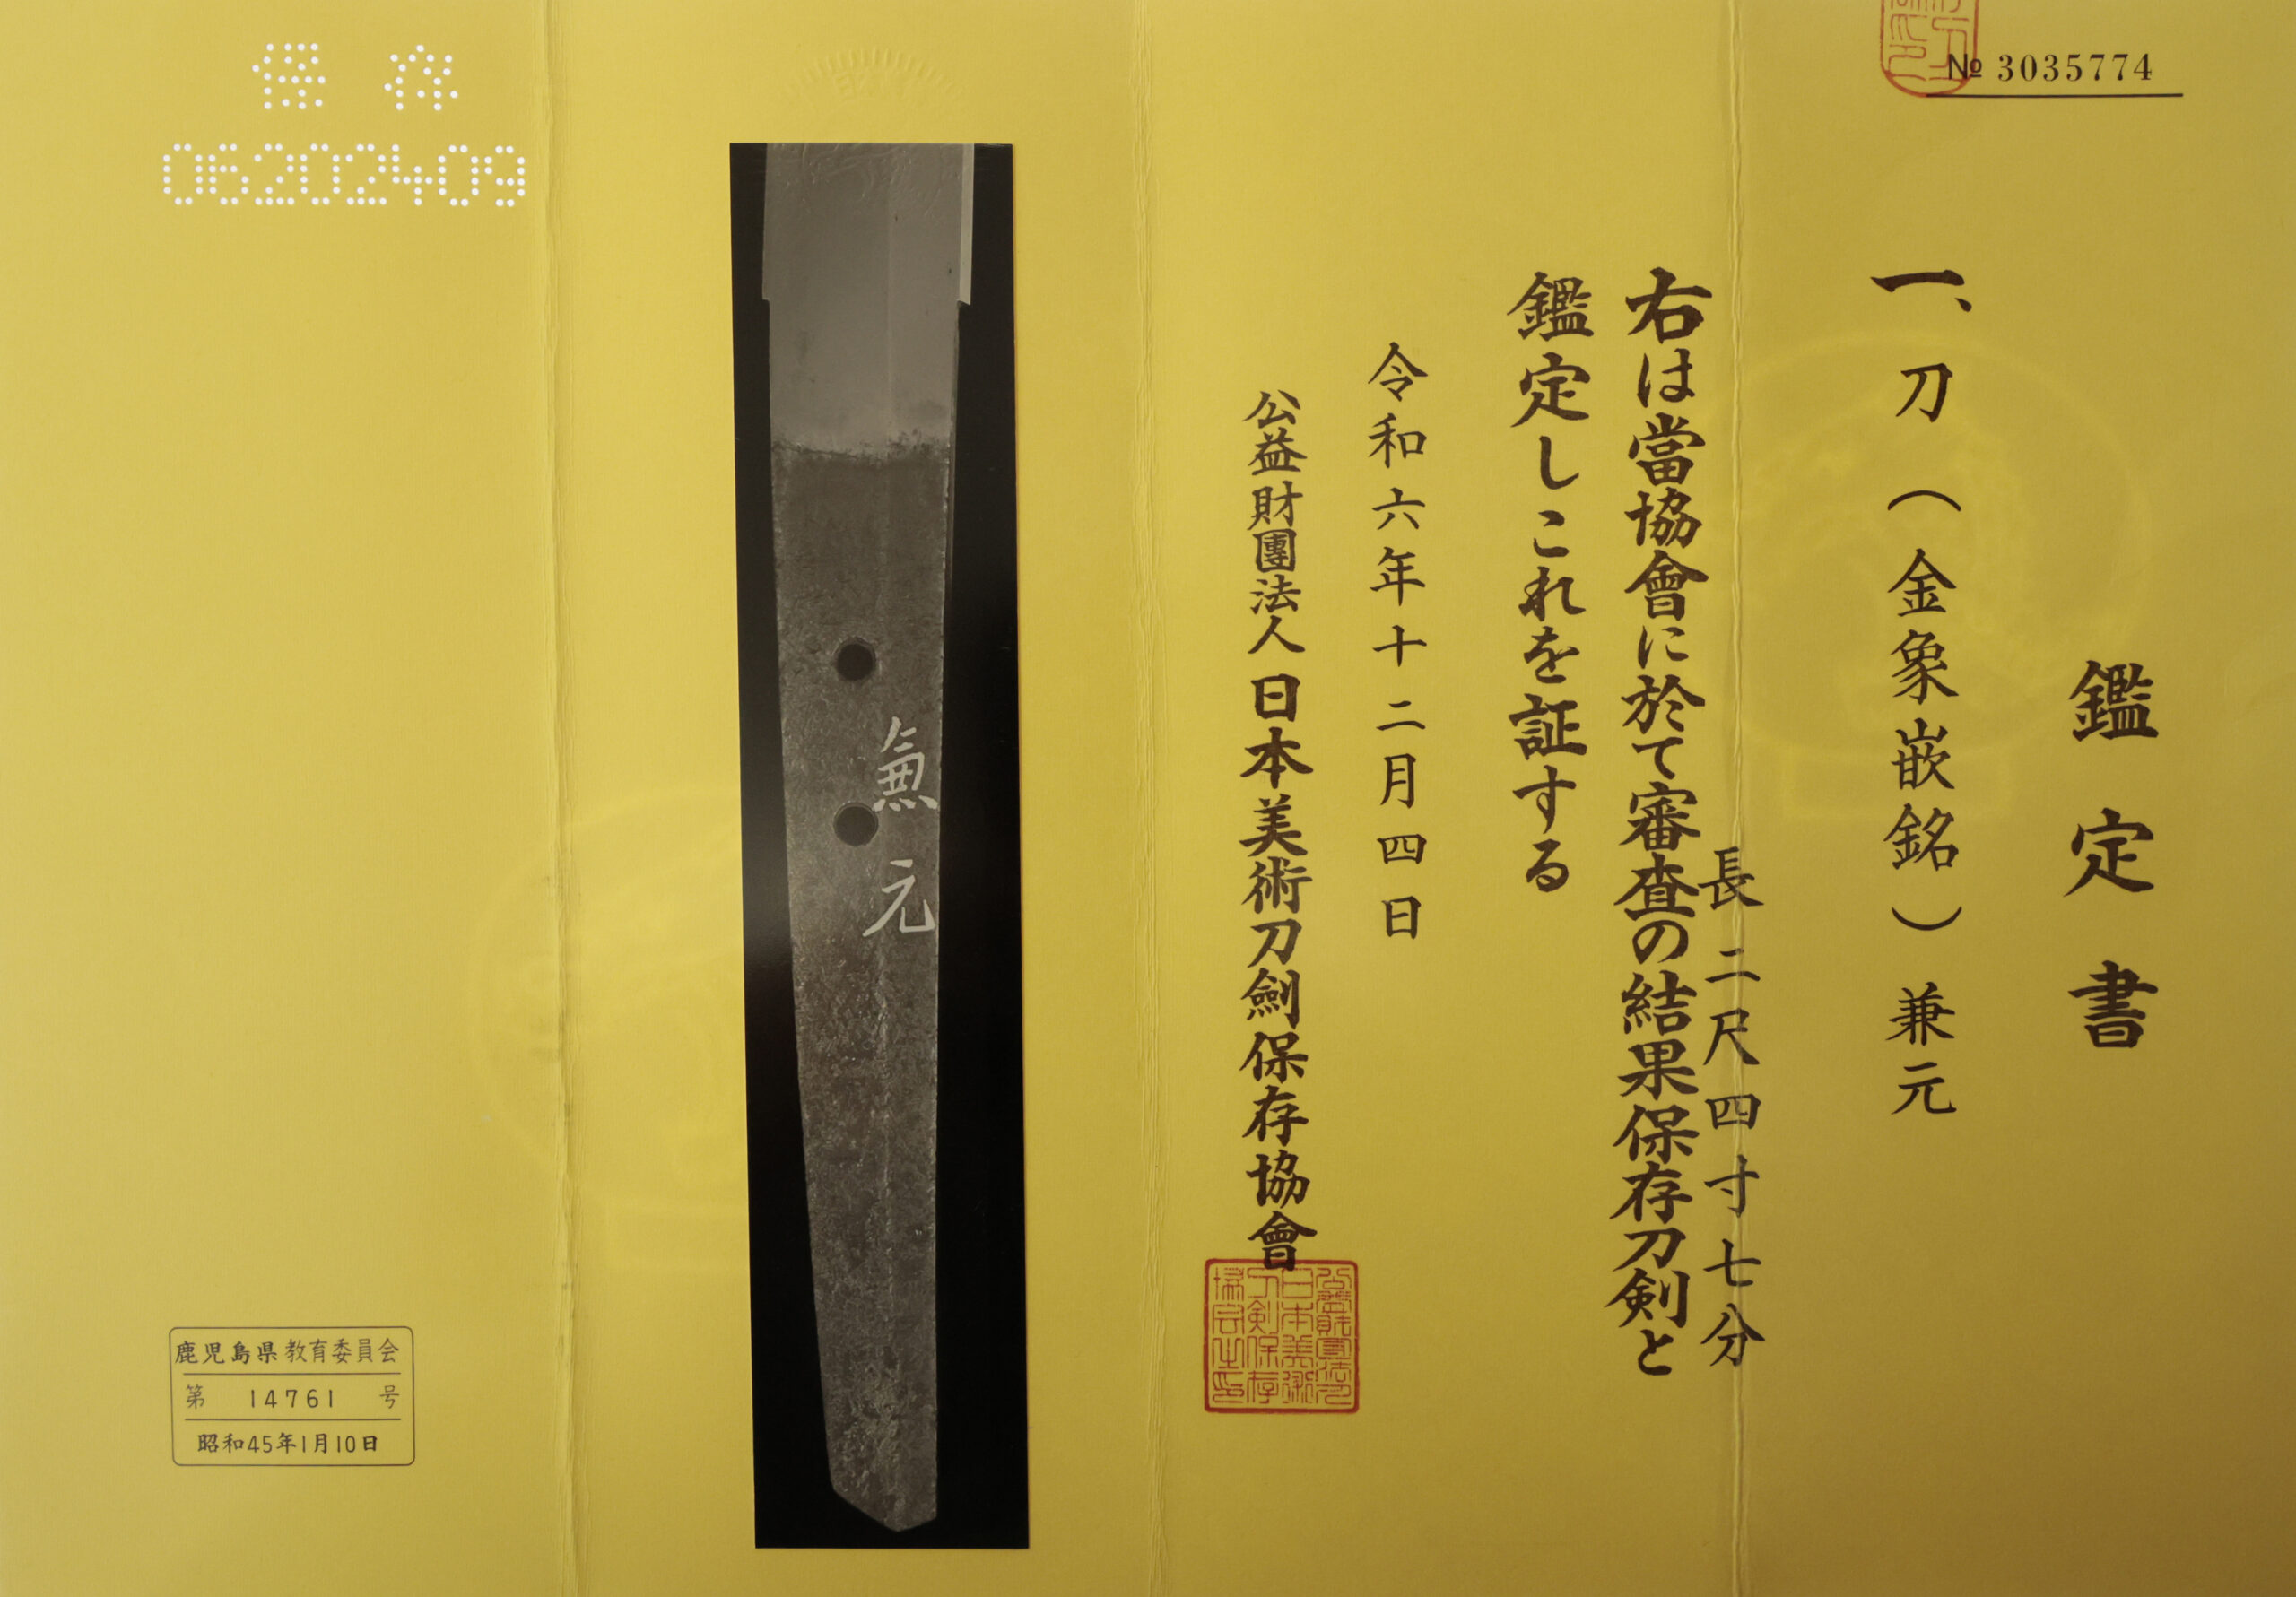 № 3035774
鑑定書
一、刀（金象嵌銘）兼元
長二尺四寸七分
右は當協會に於て審査の結果保存刀剣と
鑑定しこれを証する
令和六年十二月四日
公益財團法人日本美術刀劍保存協會
兼元
保存
06202409
鹿児島県教育委員会
第 14761 号
昭和45年1月10日